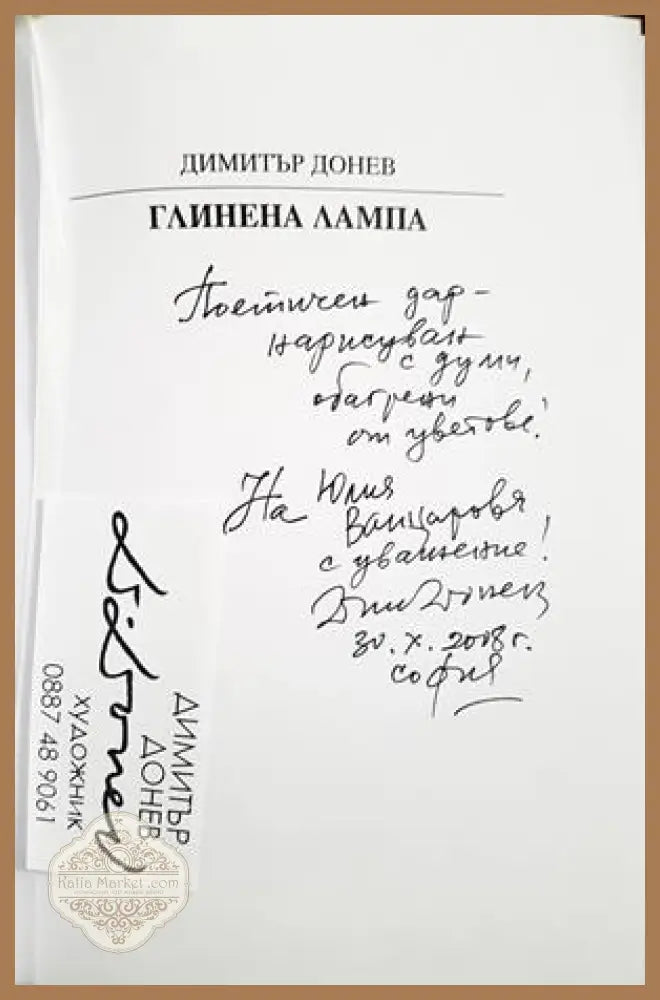 ДИМИТЪР ДОНЕВ
ГЛИНЕНА ЛАМПА
Поетичен дар -
нарисуван
с думи,
обагрени
от цветове!
На Юлия
Ванцаровя
с уважение!
30.X.2008 г.
София
ДИМИТЪР
ДОНЕВ
ХУДОЖНИК
0887 48 9061
Katia Market .com